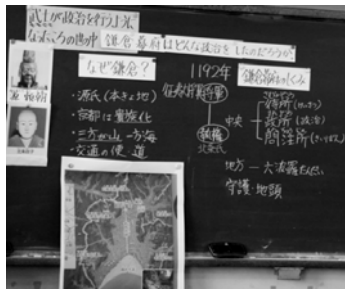 武士が政治を行うように
なったころの世の中
鎌倉幕府はどんな政治をしたのだろうか?
なぜ鎌倉?
・源氏(本きょ地)
・京都は貴族化
・三方が山 一方海
・交通の便・道
源 頼朝
1192年
征夷大将軍
執権
北条氏
鎌倉幕府のしくみ
中央
侍所
政所(政治)
問注所
地方 六波羅たんだい
守護・地頭